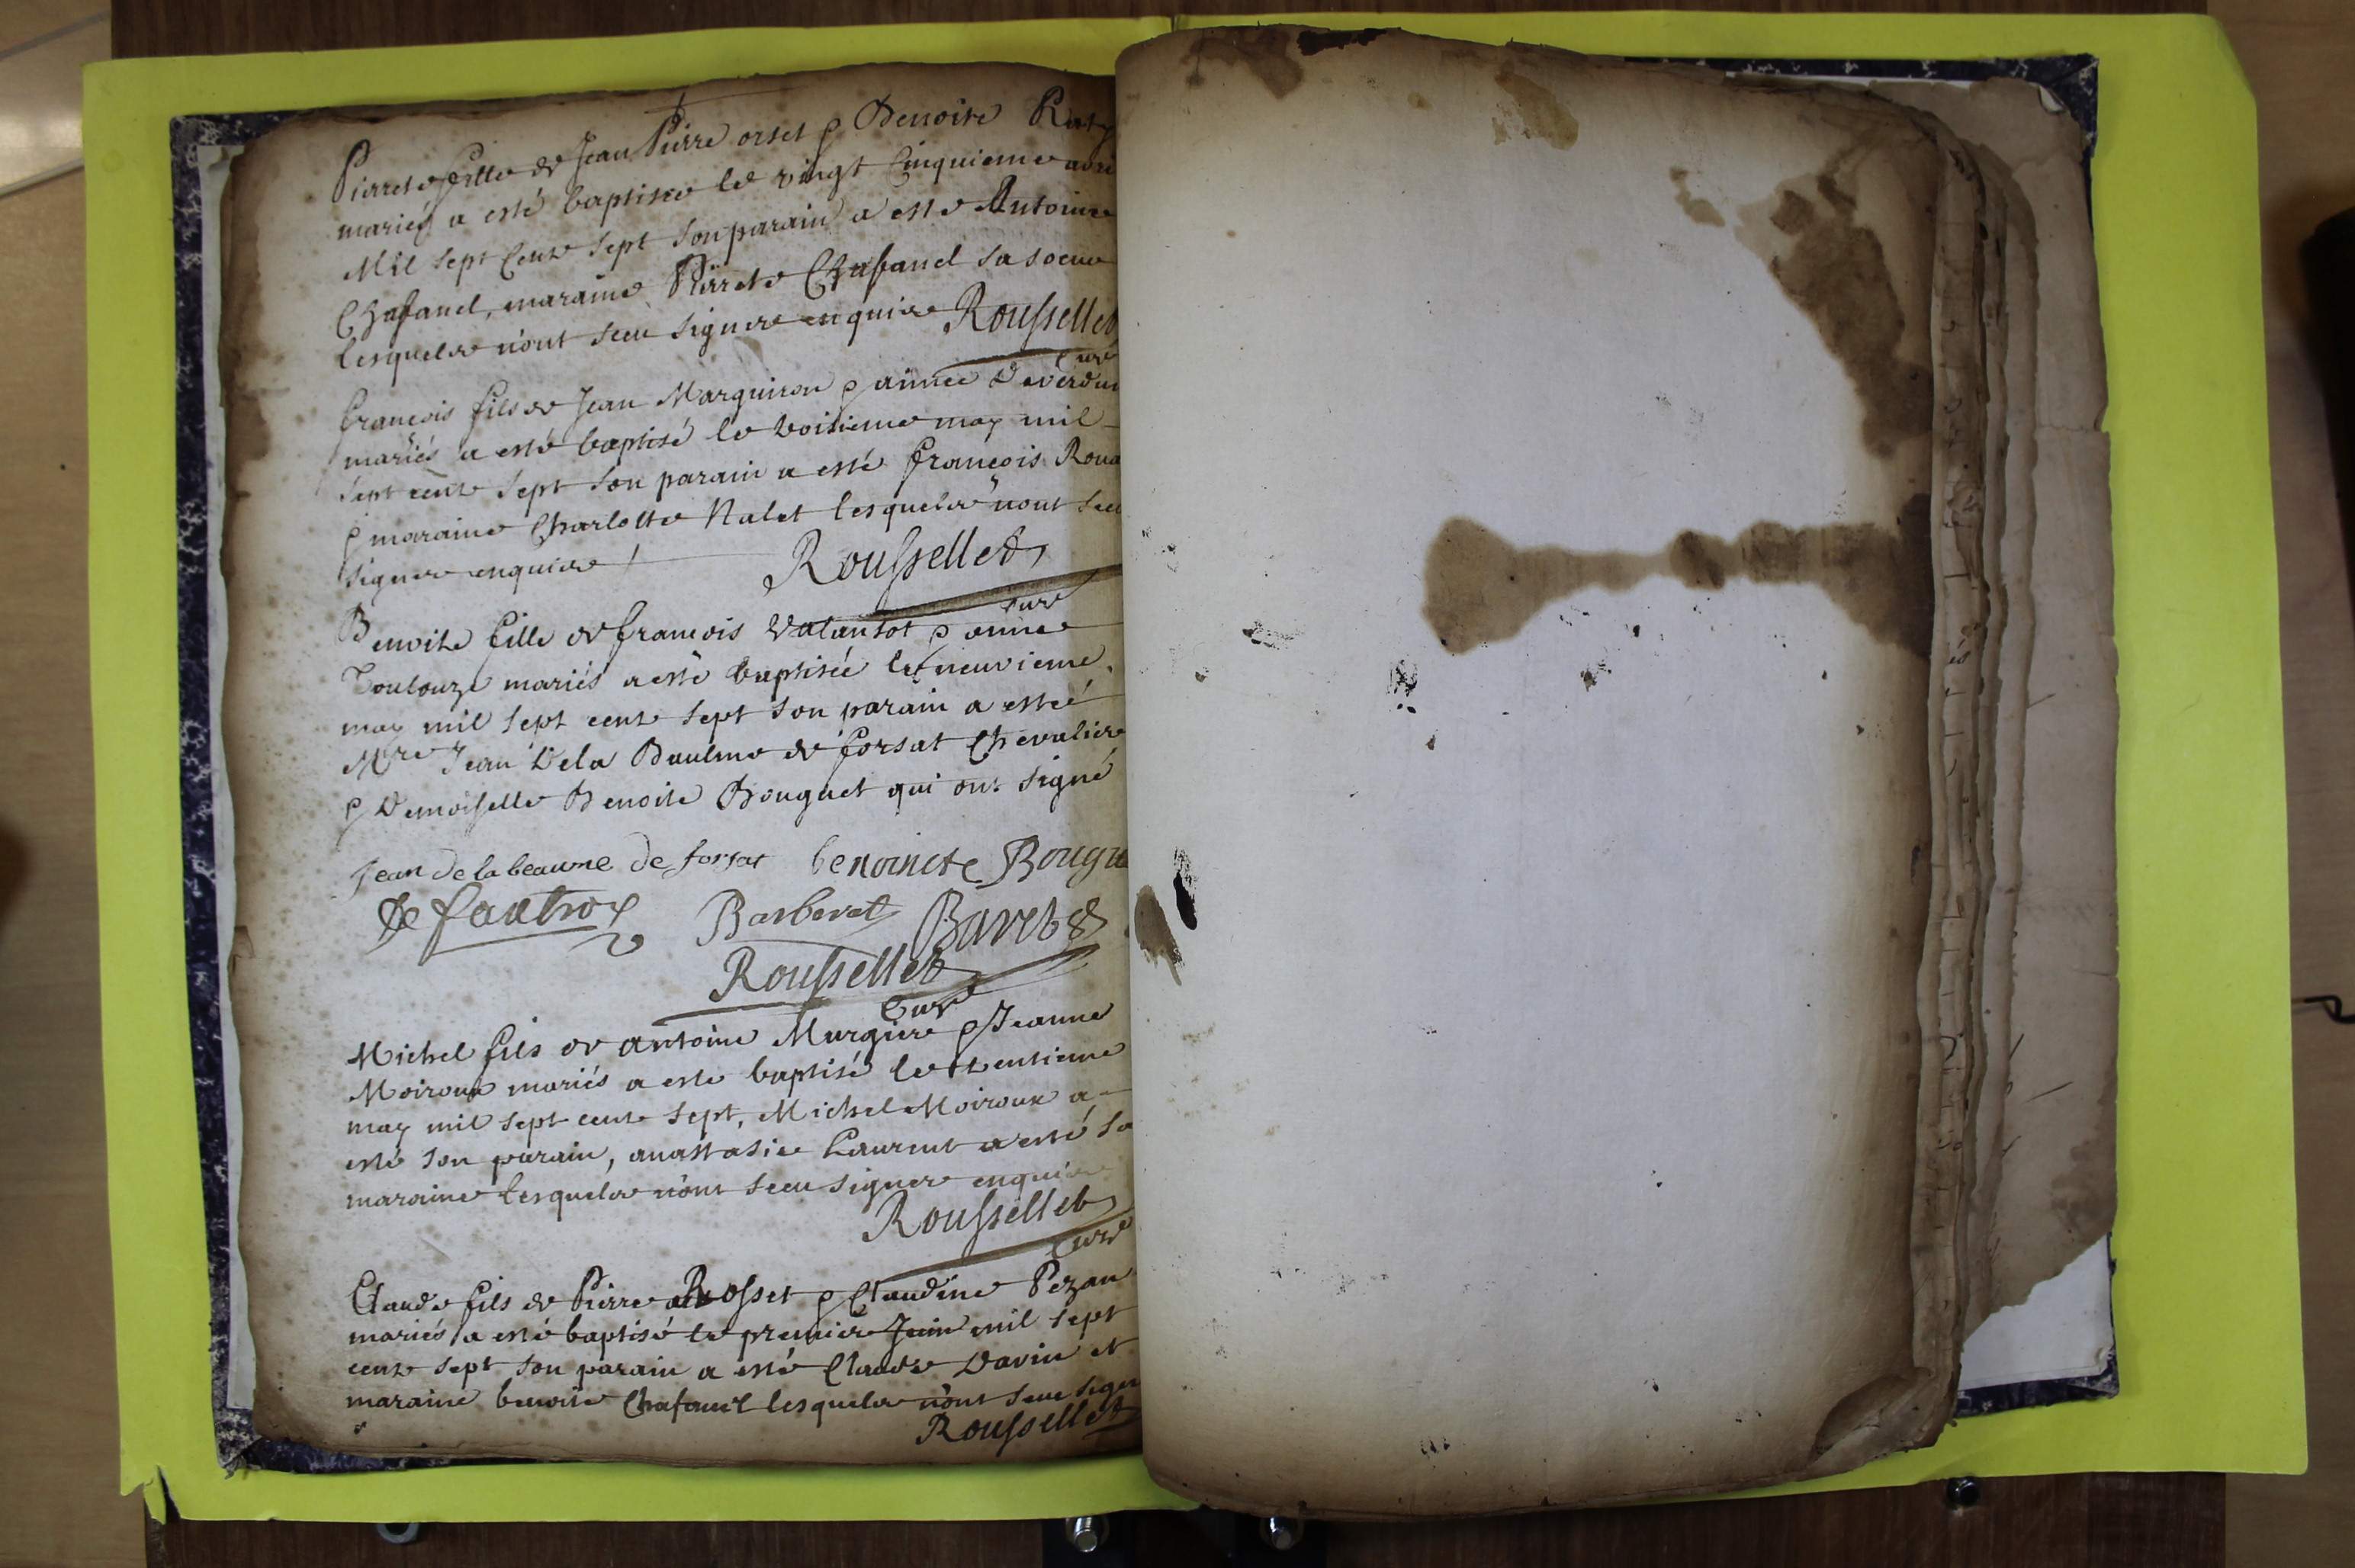 Pierrete fille de Jean Pierre orset & Benoite
mariés a esté baptisée le vingt Cinquieme avri
Mil sept Cents sept son parain a esté Antoine
Chafanel, maraine Pierrete Chafanel sa soeur
lesquels n'ont sceu signer enquire Roussellet
Curé
françois fils de Jean Marguiron & aimée Deverdun
mariés a esté baptisé le troisieme may mil
sept cents sept son parain a esté françois
& maraine Charlotte Nalet lesquels n'ont sceu
signer enquire Roussellet
Curé
Benoite fille de françois Valansot & anne
Toulouze mariés a esté baptisée le neuvieme
may mil sept cents sept son parain a esté
Mre Jean Dela Baulme de forsat Chevalier
& Demoiselle Benoite Bouguet qui ont signé
Jean de la beaume de forsat benoincte Bougu
De fautroy Barberet Baret
Roussellet
Curé
Michel fils de antoine Murgier & Jeanne
Moiroux mariés a esté baptisé le trentieme
may mil sept cents sept, Michel Moiroux a
esté son parain, anastasie Laurent a esté sa
maraine lesquels n'ont sceu signer enquire
Roussellet
Curé
Claude fils de Pierre Rosset & Claudine Pezan
mariés a esté baptisé le premier Juin mil sept
cents sept son parain a esté Claude Davin et
maraine benoite Chafanel lesquels n'ont sceu signer
Roussellet